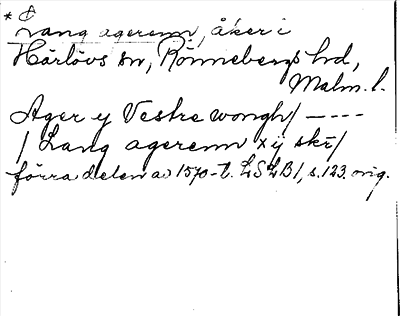 * Lang ageren, åker i
Härlövs sn, Rönnebergs hd,
Malm. l.
Ager y Vestre wongh / – – – –
/ Lang agerenn xij sk / 
förra delen av 1570-t. LSLB 1, s. 123. orig.